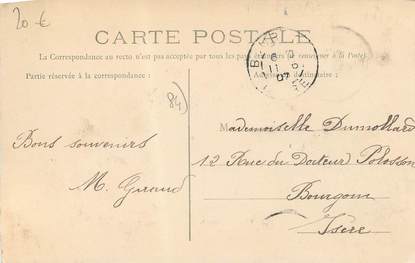 20 €
CARTE POSTALE
La Correspondance au recto n'est pas acceptée par tous les pays (se renseigner à la Poste).
Partie réservée à la correspondance :
84
Bons souvenirs
M. Giraud
Mademoiselle Dumollard
12 Rue du Docteur Polosson
Bourgoin
Isère